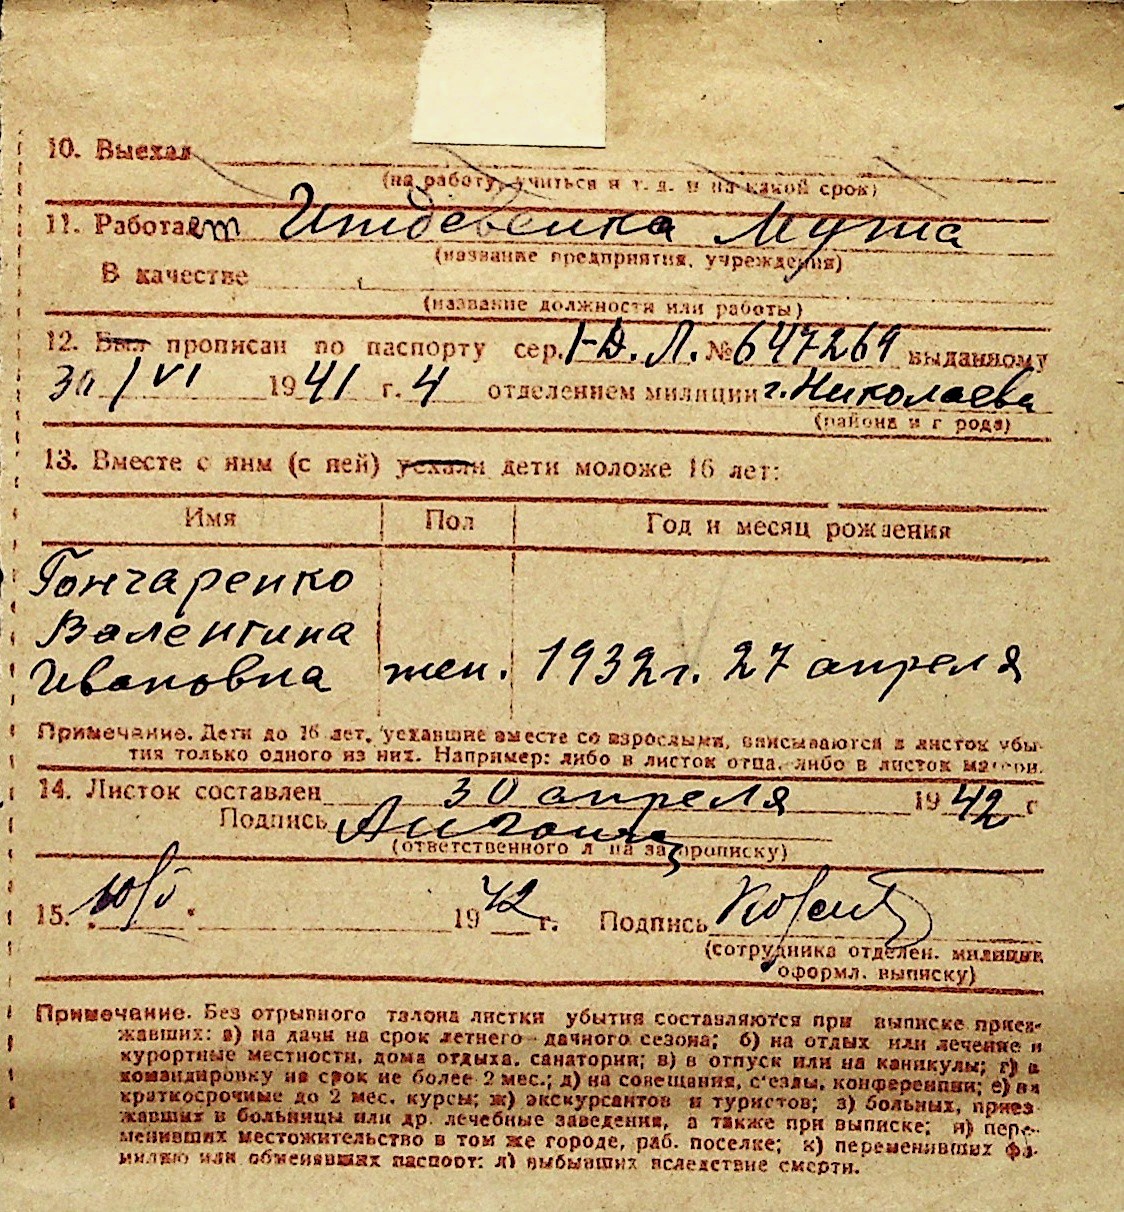 10. Выехал
(на работу, учиться и т. д. и на какой срок)
11. Работает Иждевенка мужа
(название предприятия, учреждения)
В качестве
(название должности или работы)
12. Был прописан по паспорту сер. I-Д. Л. № 647269 выданному
30/VI 1941 г. 4 отделением милиции г. Николаева
(района и города)
13. Вместе с ним (с ней) уехали дети моложе 16 лет:
Имя Пол Год и месяц рождения
Гончаренко
Валентина
Ивановна жен. 1932 г. 27 апреля
Примечание. Дети до 16 лет, уехавшие вместе со взрослыми, вписываются в листок убы-
тия только одного из них. Например: либо в листок отца, либо в листок матери.
14. Листок составлен 30 апреля 1942 г
Подпись
(ответственного л на за прописку)
15. 10/5. 1942 г. Подпись
(сотрудника отделен. милиции,
оформл. выписку)
Примечание. Без отрывного талона листки убытия составляются при выписке приез-
жавших: а) на дачи на срок летнего дачного сезона; б) на отдых или лечение в
курортные местности, дома отдыха, санатории; в) в отпуск или на каникулы; г) в
командировку на срок не более 2 мес.; д) на совещания, с'езды, конференции; е) на
краткосрочные до 2 мес. курсы; ж) экскурсантов и туристов; з) больных, приез-
жавших в больницы или др. лечебные заведения, а также при выписке; и) пере-
менивших местожительство в том же городе, раб. поселке; к) переменивших фа-
милию или обменявших паспорт; л) выбывших вследствие смерти.